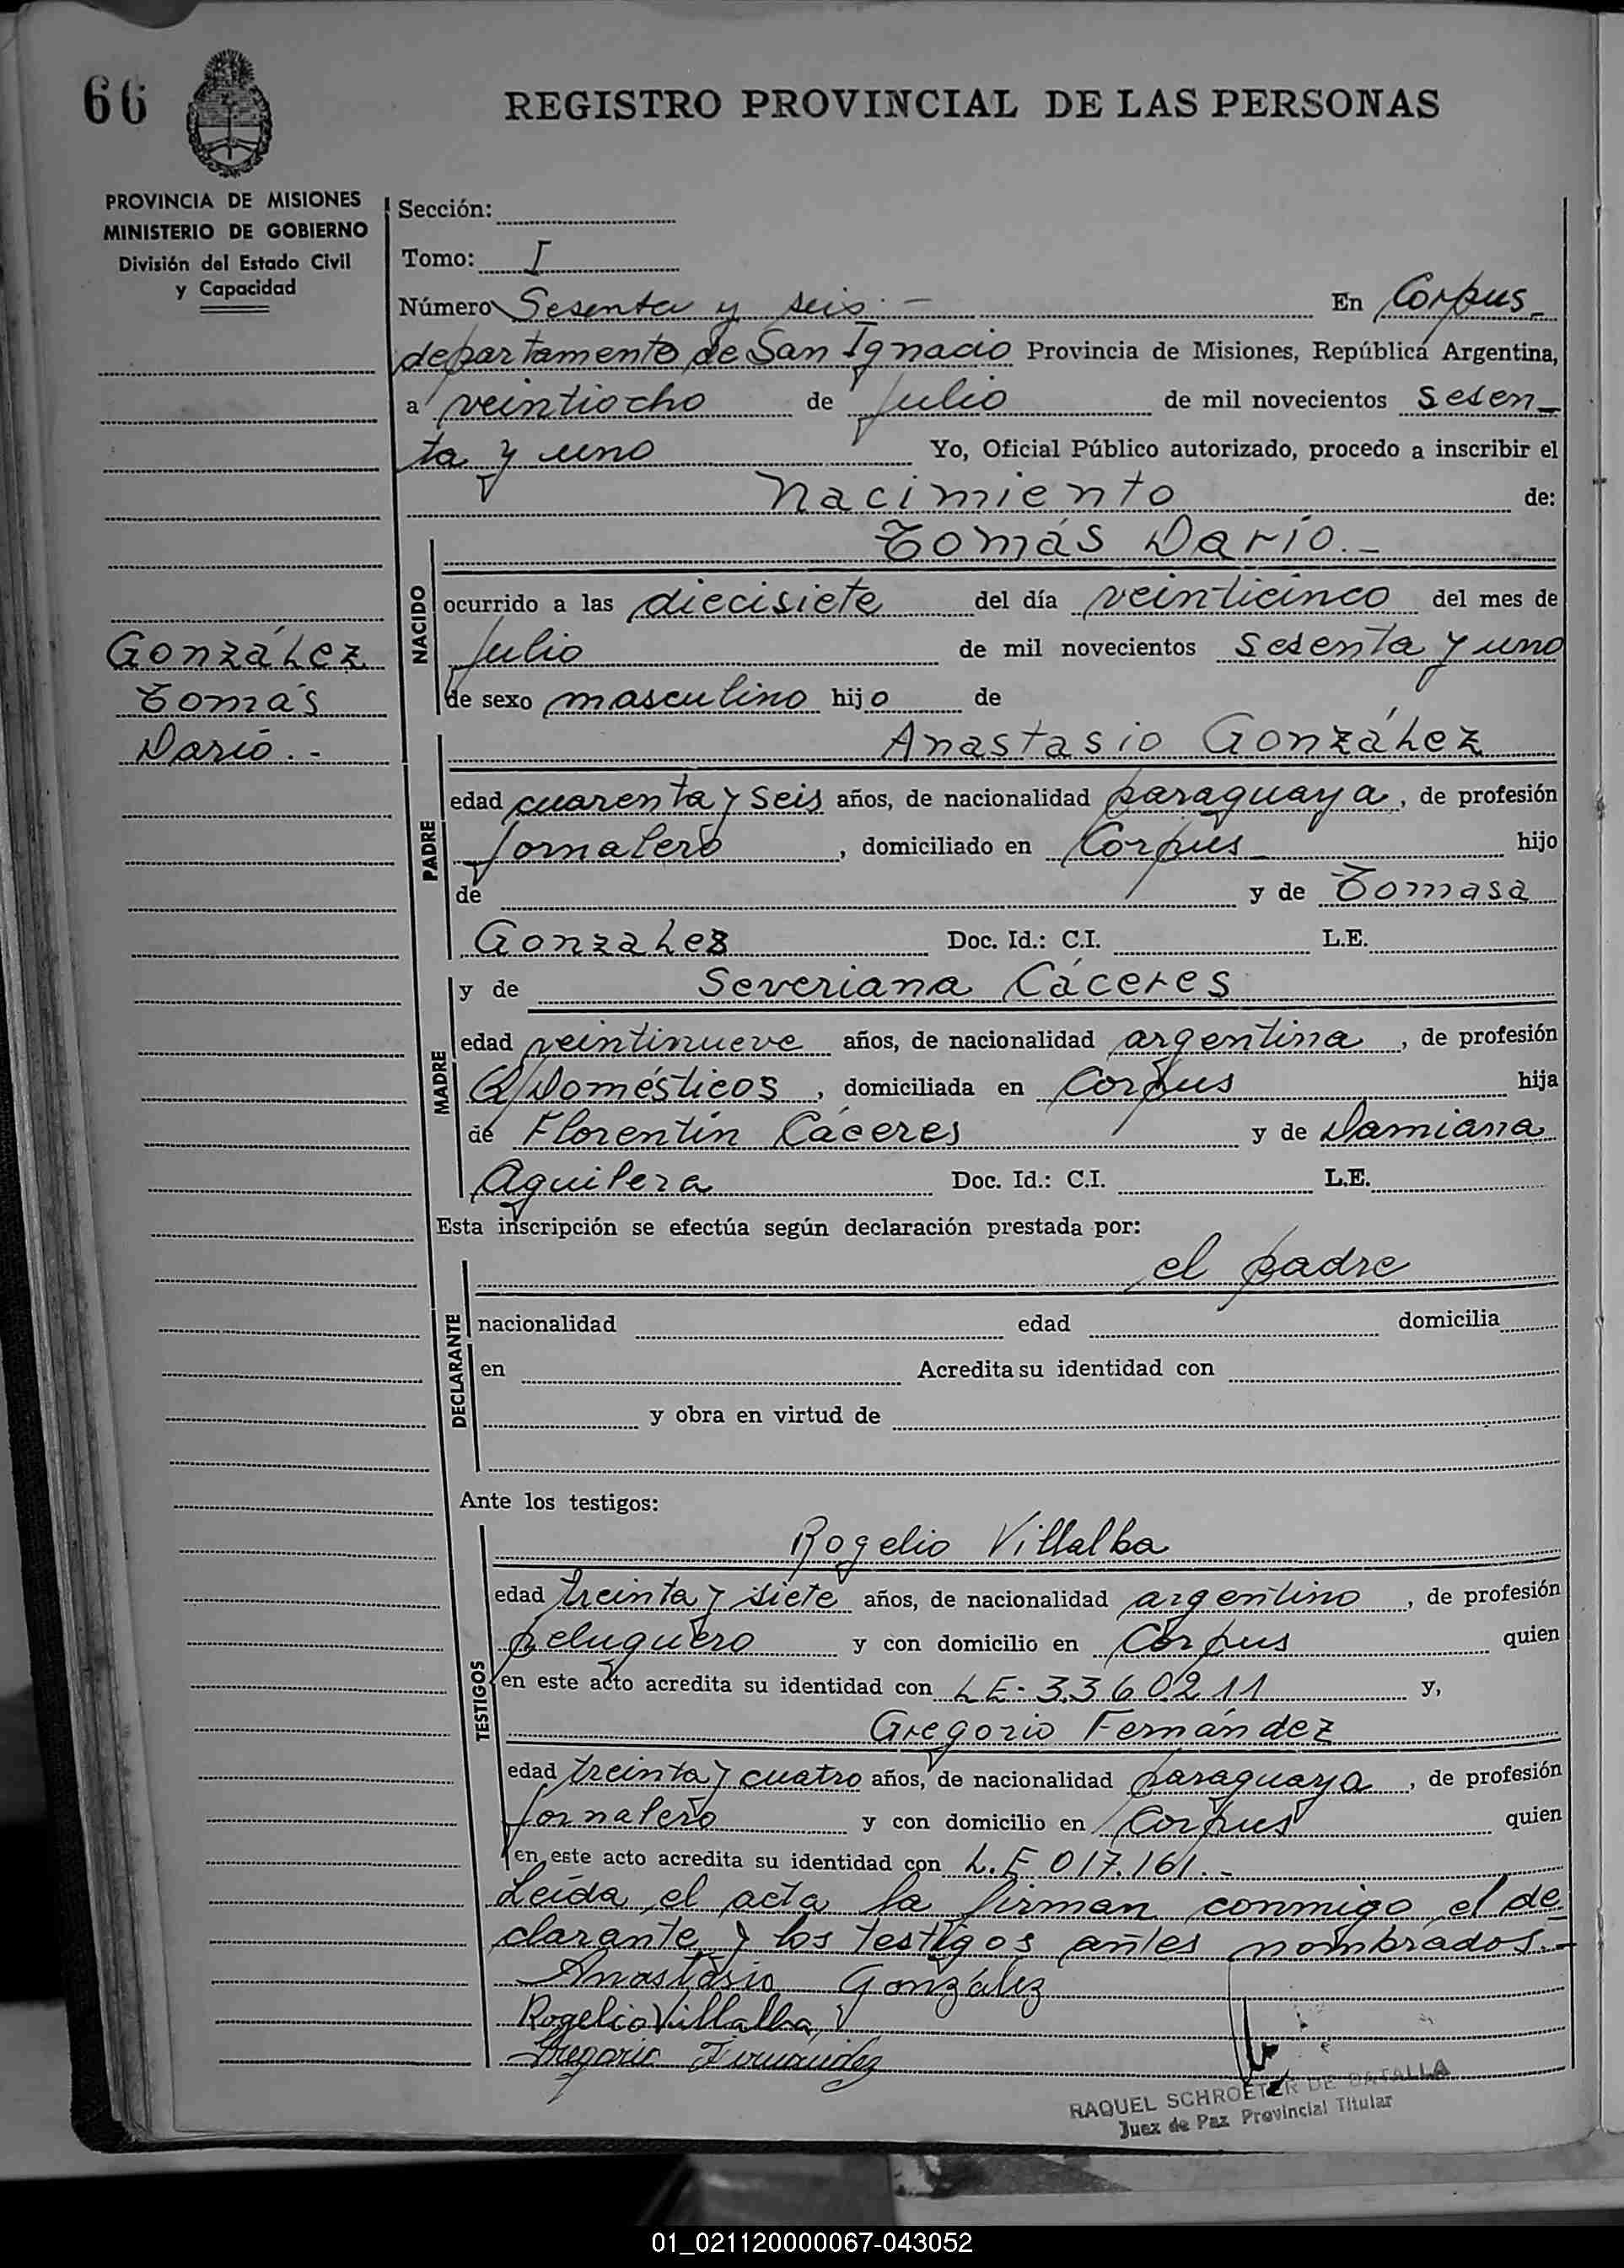 66
REGISTRO PROVINCIAL DE LAS PERSONAS
PROVINCIA DE MISIONES
MINISTERIO DE GOBIERNO
División del Estado Civil
y Capacidad
Sección:
Tomo: I
Número Sesenta y seis.- En Corpus-
departamento de San Ignacio Provincia de Misiones, República Argentina,
a veintiocho de Julio de mil novecientos sesen-
ta y uno Yo, Oficial Público autorizado, procedo a inscribir el
Nacimiento de:
Tomás Darío.-
NACIDO
ocurrido a las diecisiete del día veinticinco del mes de
Julio de mil novecientos sesenta y uno
de sexo masculino hijo de
González
Tomás
Darío.-
Anastasio González
PADRE
edad cuarenta y seis años, de nacionalidad paraguaya, de profesión
Jornalero, domiciliado en Corpus hijo
de y de Tomasa
Gonzalez Doc. Id.: C.I. L.E.
y de Severiana Cáceres
MADRE
edad veintinueve años, de nacionalidad argentina, de profesión
Q/Domésticos, domiciliada en Corpus hija
de Florentín Cáceres y de Damiana
Aguilera Doc. Id.: C.I. L.E.
Esta inscripción se efectúa según declaración prestada por:
el padre
DECLARANTE
nacionalidad edad domicilia
en Acredita su identidad con
y obra en virtud de
Ante los testigos:
Rogelio Villalba
TESTIGOS
edad treinta y siete años, de nacionalidad argentino, de profesión
peluquero y con domicilio en Corpus quien
en este acto acredita su identidad con LE. 3360211 y,
Gregorio Fernández
edad treinta y cuatro años, de nacionalidad paraguaya, de profesión
Jornalero y con domicilio en Corpus quien
en este acto acredita su identidad con L.E 017.161.-
Leída el acta la firman conmigo el de
clarante y los testigos antes nombrados.-
Anastasio González
Rogelio Villalba
Gregorio Fernández
RAQUEL SCHROETER DE BATALLA
Juez de Paz Provincial Titular
01_021120000067-043052